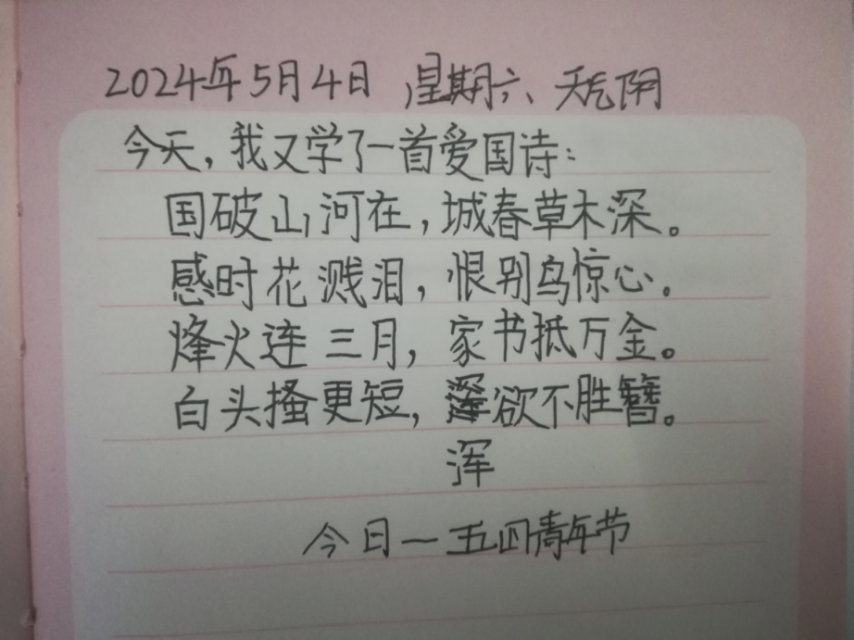 2024年5月4日 星期六、天气阴
今天，我又学了一首爱国诗：
国破山河在，城春草木深。
感时花溅泪，恨别鸟惊心。
烽火连三月，家书抵万金。
白头搔更短，浑欲不胜簪。
浑
今日一五四青年节